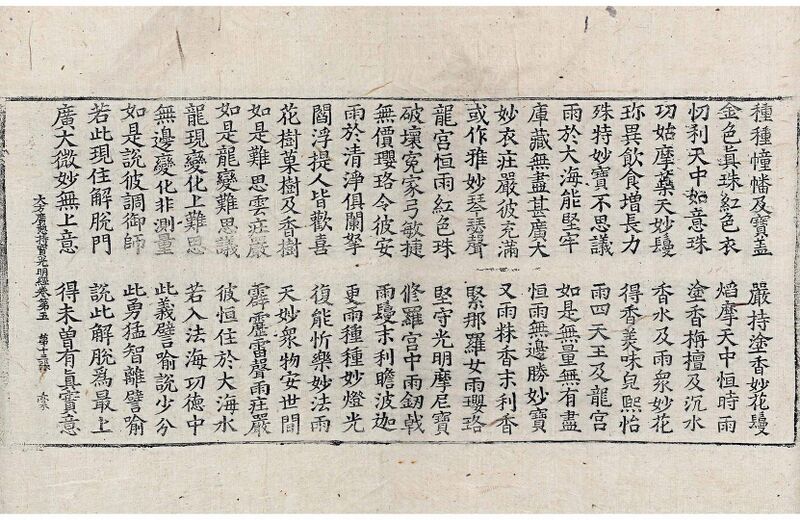 種種幢幡及寶盖　嚴持塗香妙花鬘
金色真珠紅色衣　熖摩天中恒時雨
忉利天中如意珠　塗香栴檀及沉水
㓛始摩藥天妙鬘　香水及雨衆妙花
珎異飲食增長力　得香美味皃熙怡
殊特妙寶不思議　雨四天王及龍宮
雨於大海能堅牢　如是無量無有盡
庫藏無盡甚廣大　恒雨無邊勝妙寶
妙衣莊嚴彼充滿　又雨粖香末利香
或作雅妙琴瑟聲　緊那羅女雨瓔珞
龍宮恒雨紅色珠　堅守光明摩尼寶
破壞寃家弓敏捷　修羅宮中雨釰戟
無價瓔珞令彼安　雨鬘末利瞻波迦
雨於清淨俱闌拏　更雨種種妙燈光
閻浮提人皆歡喜　復能忻樂妙法雨
花樹菓樹及香樹　天妙衆物安世間
如是難思雲莊嚴　霹靂雷聲雨莊嚴
如是龍變難思議　彼恒住於大海水
龍現變化上難思　若入法海功德中
無邊變化非測量　此義譬喻說少分
如是說彼調御師　此勇猛智離譬喻
若此現住解脫門　說此解脫爲最上
廣大微妙無上意　得未曾有真實意
大方廣惣持寶光明經卷第五　第十三張